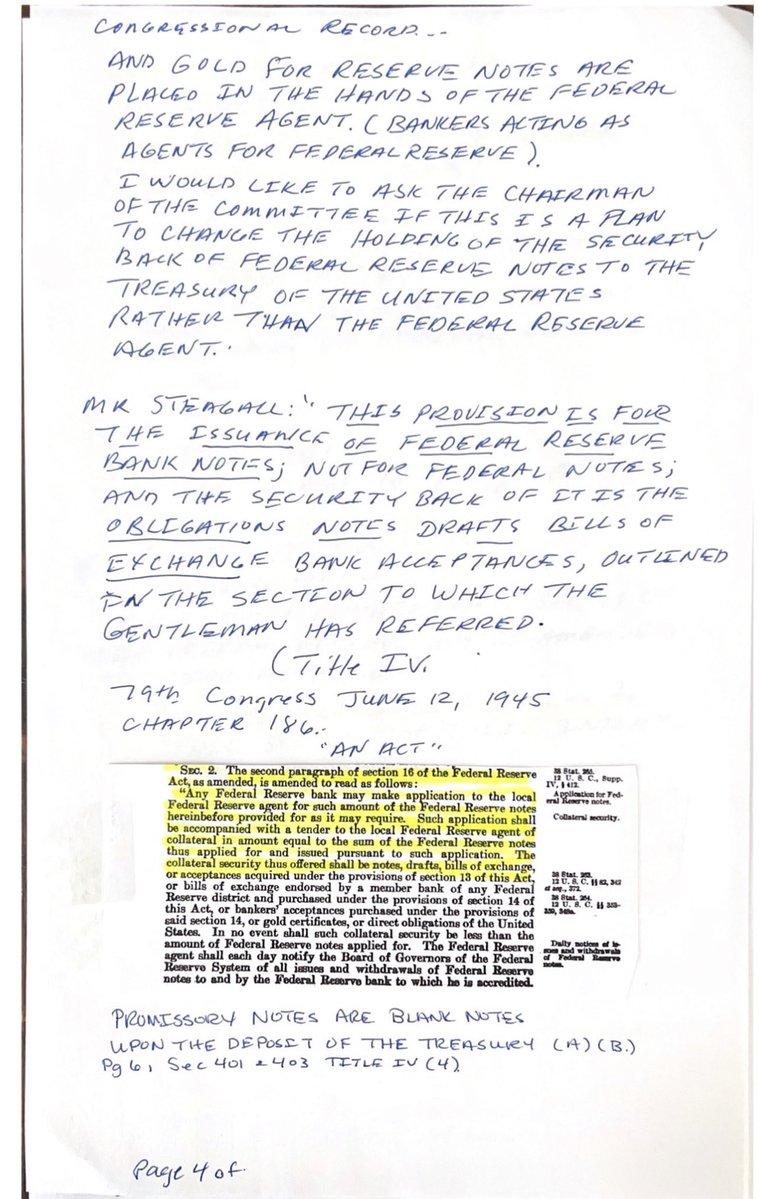 CONGRESSIONAL RECORD...
AND GOLD FOR RESERVE NOTES ARE
PLACED IN THE HANDS OF THE FEDERAL
RESERVE AGENT. (BANKERS ACTING AS
AGENTS FOR FEDERAL RESERVE).
I WOULD LIKE TO ASK THE CHAIRMAN
OF THE COMMITTEE IF THIS IS A PLAN
TO CHANGE THE HOLDING OF THE SECURITY,
BACK OF FEDERAL RESERVE NOTES TO THE
TREASURY OF THE UNITED STATES
RATHER THAN THE FEDERAL RESERVE
AGENT.
MR STEAGALL: "THIS PROVISION IS FOUR
THE ISSUANCE OF FEDERAL RESERVE
BANK NOTES; NOT FOR FEDERAL NOTES;
AND THE SECURITY BACK OF IT IS THE
OBLIGATIONS NOTES DRAFTS BILLS OF
EXCHANGE BANK ACCEPTANCES, OUTLINED
IN THE SECTION TO WHICH THE
GENTLEMAN HAS REFERRED.
(Title IV.
79th Congress JUNE 12, 1945
CHAPTER 186.
"AN ACT"
SEC. 2. The second paragraph of section 16 of the Federal Reserve
Act, as amended, is amended to read as follows:
"Any Federal Reserve bank may make application to the local
Federal Reserve agent for such amount of the Federal Reserve notes
hereinbefore provided for as it may require. Such application shall
be accompanied with a tender to the local Federal Reserve agent of
collateral in amount equal to the sum of the Federal Reserve notes
thus applied for and issued pursuant to such application. The
collateral security thus offered shall be notes, drafts, bills of exchange,
or acceptances acquired under the provisions of section 13 of this Act,
or bills of exchange endorsed by a member bank of any Federal
Reserve district and purchased under the provisions of section 14 of
this Act, or bankers' acceptances purchased under the provisions of
said section 14, or gold certificates, or direct obligations of the United
States. In no event shall such collateral security be less than the
amount of Federal Reserve notes applied for. The Federal Reserve
agent shall each day notify the Board of Governors of the Federal
Reserve System of all issues and withdrawals of Federal Reserve
notes to and by the Federal Reserve bank to which he is accredited.
38 Stat. 265.
12 U. S. C., Supp.
IV, § 412.
Application for Fed-
eral Reserve notes.
Collateral security.
38 Stat. 263.
12 U. S. C. §§ 82, 342
et seq., 372.
38 Stat. 264.
12 U. S. C. §§ 353-
359, 348a.
Daily notices of is-
sues and withdrawals
of Federal Reserve
notes.
PROMISSORY NOTES ARE BLANK NOTES
UPON THE DEPOSIT OF THE TREASURY (A)(B.)
Pg 6, Sec 401 & 403 TITLE IV (4)
Page 4 of